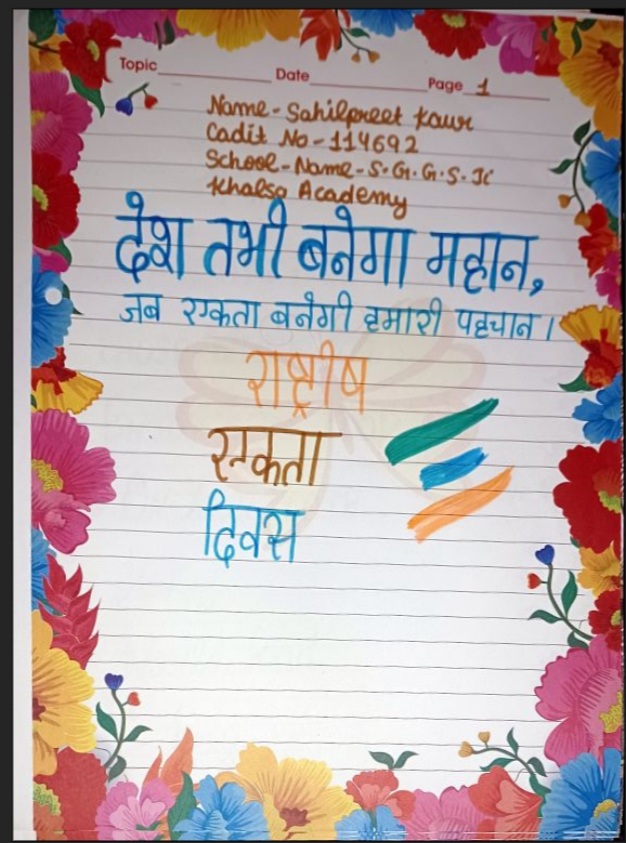 Topic Date Page 1
Name - Sahilpreet Kaur
Cadit No - 114692
School - Name - S.G.G.S. Jc
Khalsa Academy
देश तभी बनेगा महान,
जब एकता बनेगी हमारी पहचान।
राष्ट्रीष
एकता
दिवस